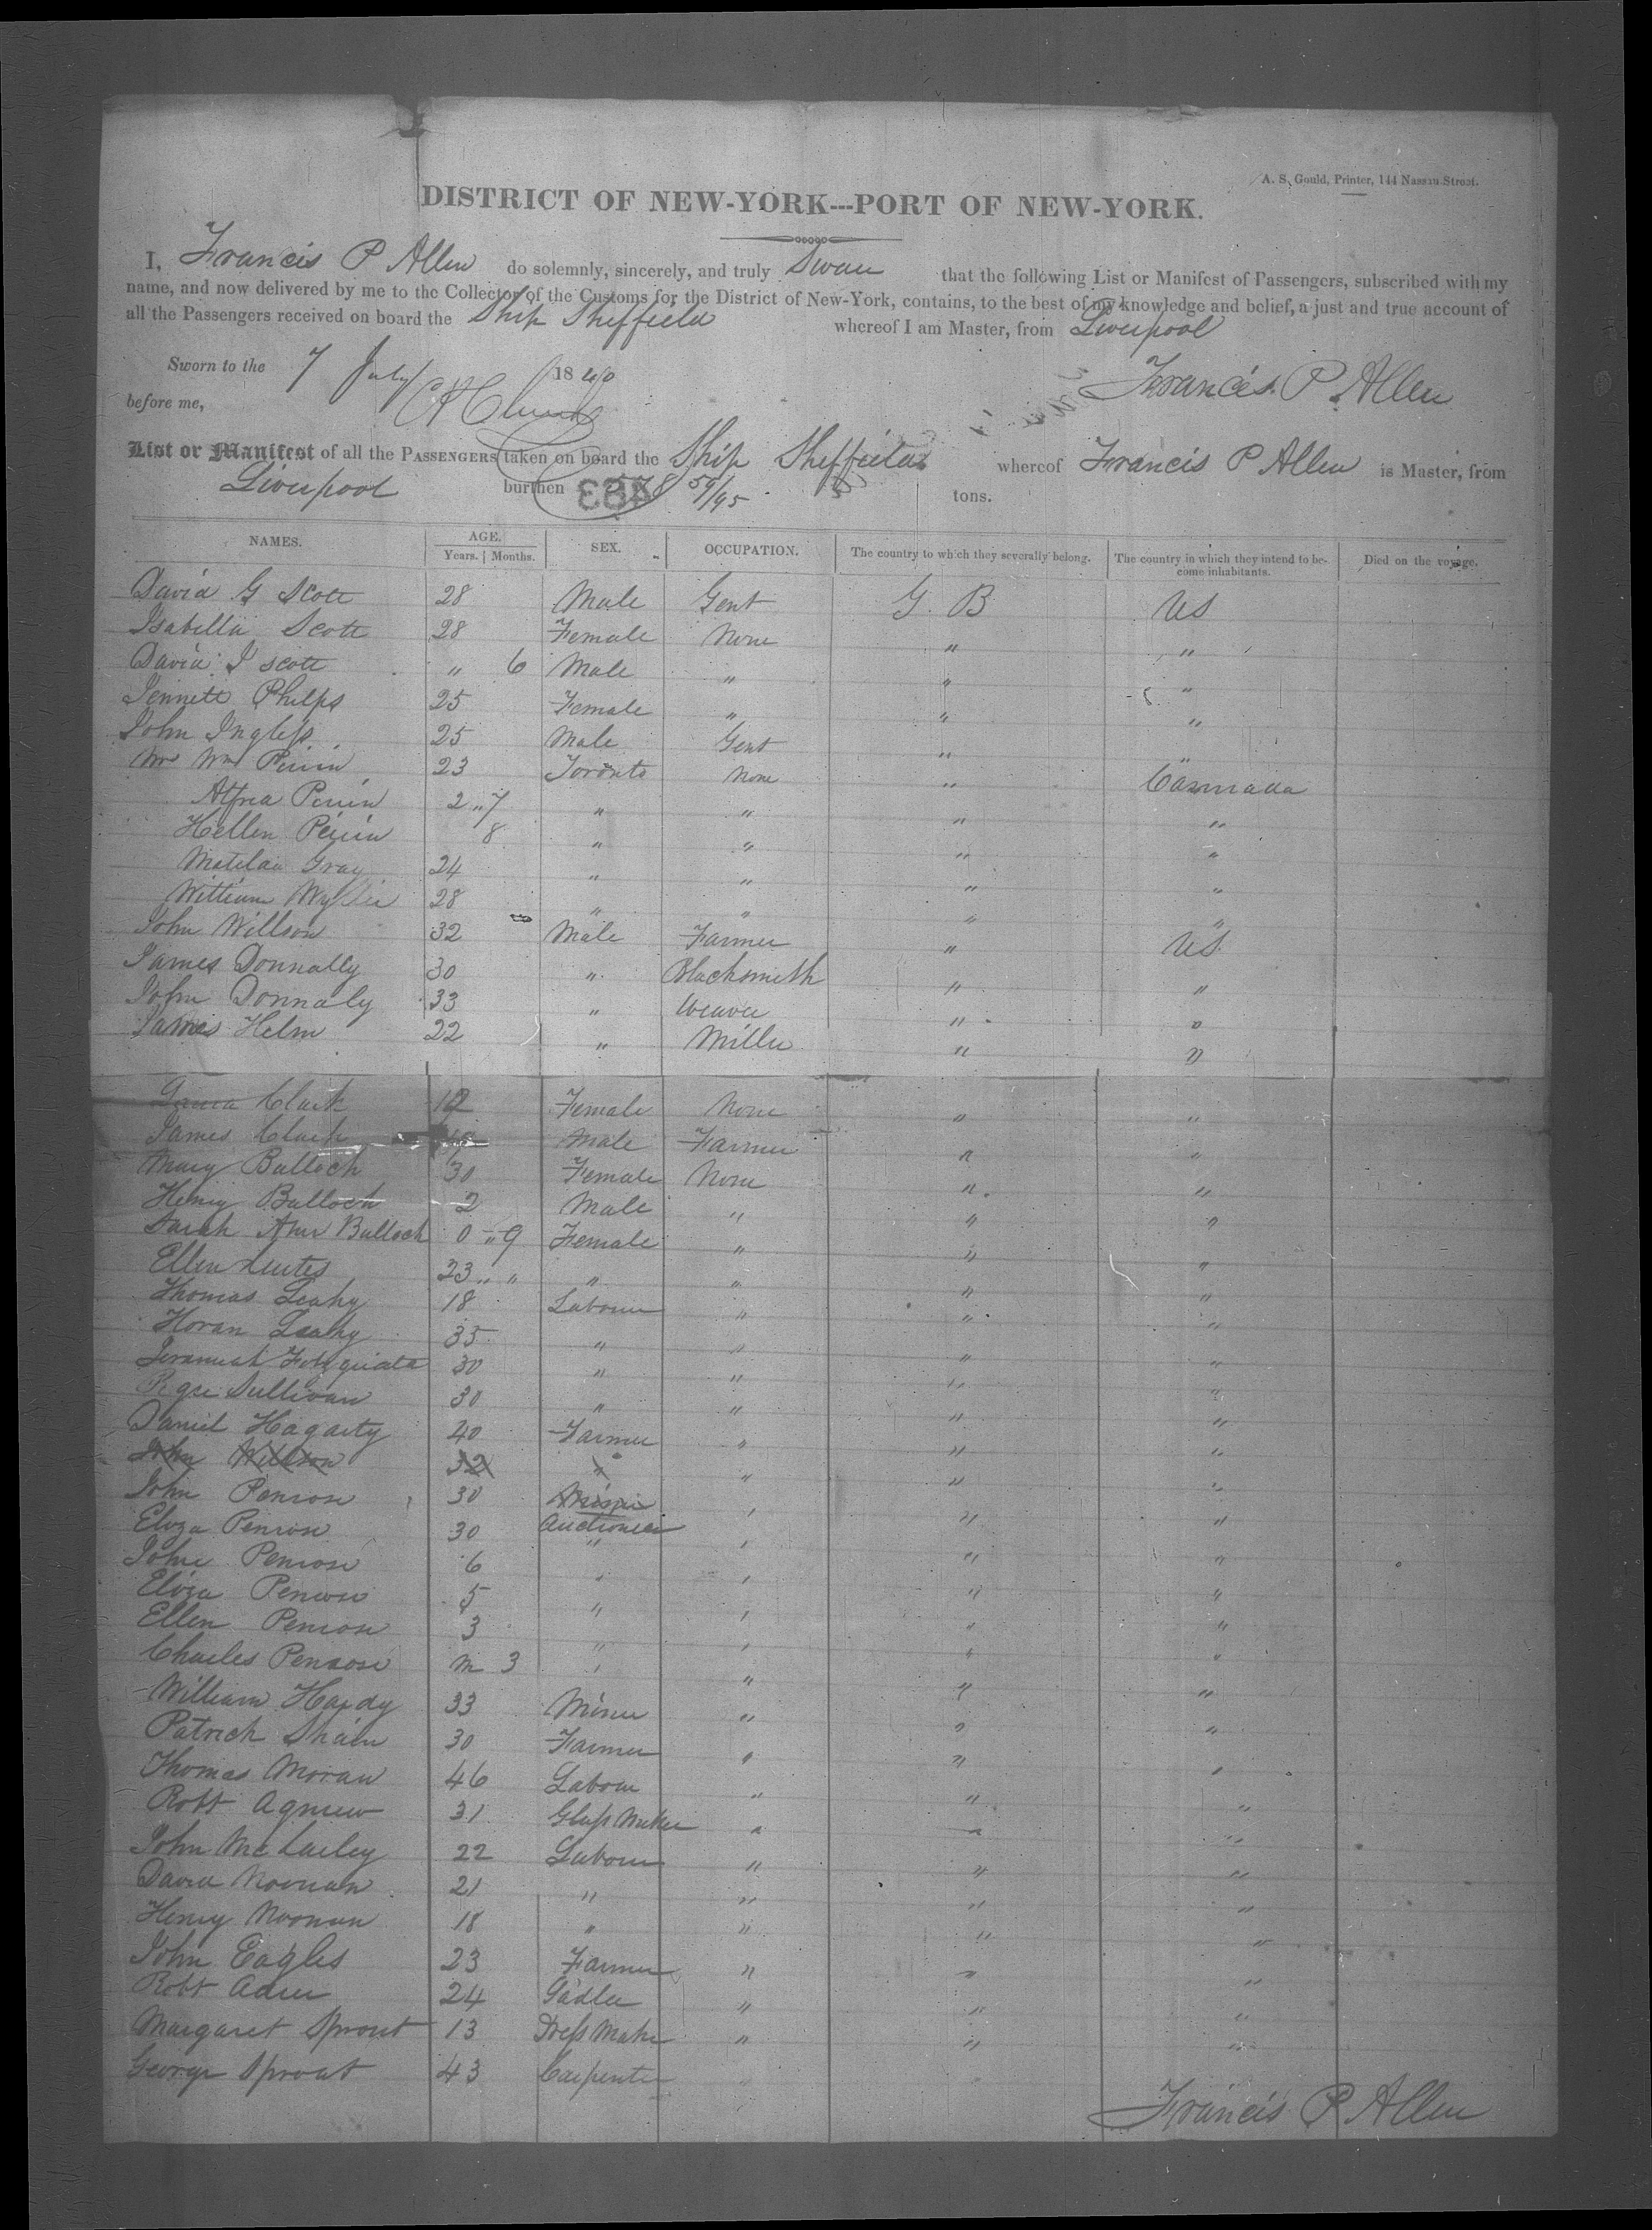 A. S. Gould, Printer, 144 Nassau Street.
DISTRICT OF NEW-YORK---PORT OF NEW-YORK.
I, Francis P Allen do solemnly, sincerely, and truly Swear that the following List or Manifest of Passengers, subscribed with my
name, and now delivered by me to the Collector of the Customs for the District of New-York, contains, to the best of my knowledge and belief, a just and true account of
all the Passengers received on board the Ship Sheffield whereof I am Master, from Liverpool
Sworn to the 7 July 1840
before me,
Francis P Allen
List or Manifest of all the PASSENGERS taken on board the Ship Sheffield whereof Francis P Allen is Master, from
Liverpool burthen 578 59/95 tons.
NAMES. AGE. Years. | Months. SEX. OCCUPATION. The country to which they severally belong. The country in which they intend to become inhabitants. Died on the voyage.
David G Scott 28 Male Gent G. B US
Isabella Scott 28 Female None " "
David I Scott " 6 Male " " "
Jennett Phelps 25 Female " " "
John Ingless 25 Male Gent " "
Mrs Wm Perrin 23 Toronto None " Cannada
Alfred Perrin 2 " 7 " " " "
Hellen Perrin 8 " " " "
Matilda Gray 24 " " " "
William Wyllie 28 " " " "
John Willson 32 Male Farmer " US
James Donnally 30 " Blacksmith " "
John Donnaly 33 " Weaver " "
James Helm 22 " Miller " "
Clark Female None " "
James Clark Male Farmer " "
Mary Bullock 30 Female None " "
Henry Bullock 2 Male " " "
Sarah Ann Bullock 0 " 9 Female " " "
Ellen 23 " " " " " "
Thomas Leahy 18 Labourer " " "
Horan Leahy 35 " " " "
Jeremiah 30 " " " "
Sullivan 30 " " " "
Daniel Hagarty 40 Farmer " " "
John Willson 32 " " " "
John Penrose 30 Miner Auctioneer " " "
Eliza Penrose 30 " " " "
John Penrose 6 " " " "
Eliza Penrose 5 " " " "
Ellen Penrose 3 " " " "
Charles Penrose m 3 " " " "
William Hardy 33 Miner " " "
Patrick 30 Farmer " " "
Thomas Moran 46 Labour " " "
Robt Agnew 31 Glass Maker " " "
John 22 Labour " " "
David Noonan 21 " " " "
Henry Noonan 18 " " " "
John Eagles 23 Farmer " " "
Robt 24 Sadler " " "
Margaret Sproat 13 Dress Maker " " "
George Sproat 43 Carpenter
Francis P Allen